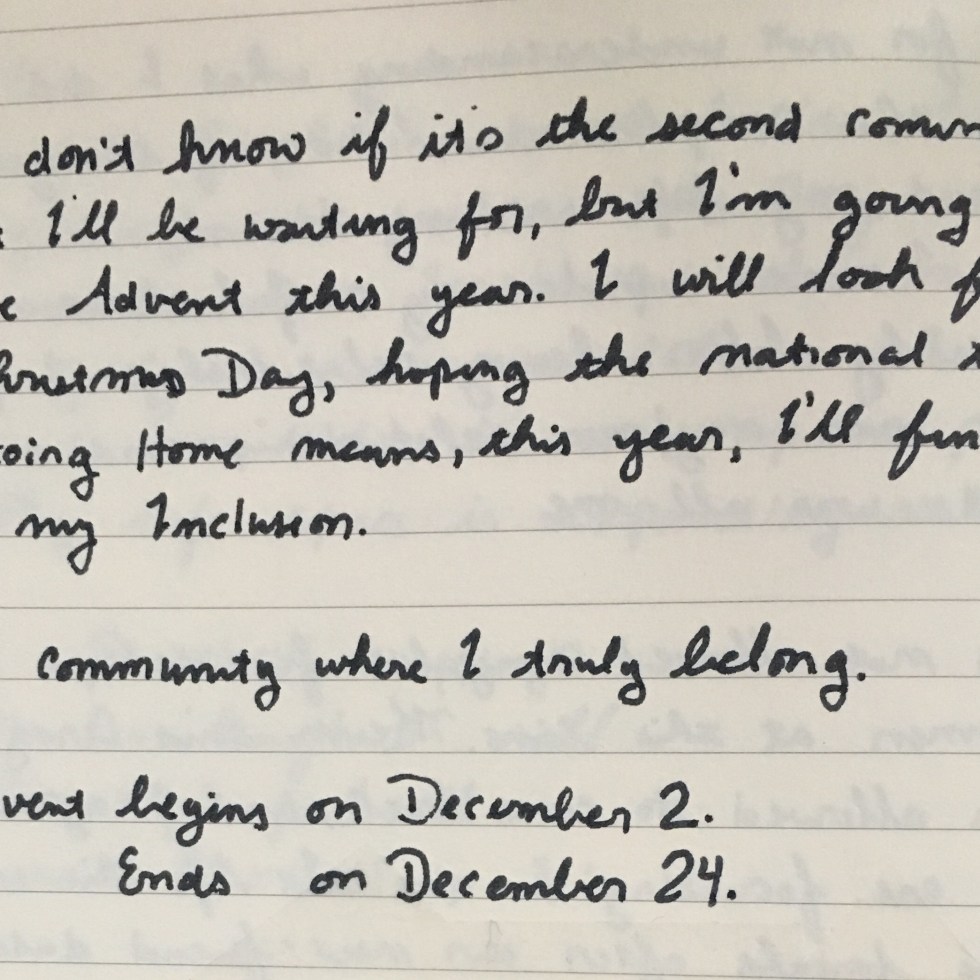 don't know if it's the second comin
I'll be waiting for, but I'm going
Advent this year. I will look f
hristmas Day, hoping the national
oing Home means, this year, I'll fin
my Inclusion.
community where I truly belong.
vent begins on December 2.
Ends on December 24.